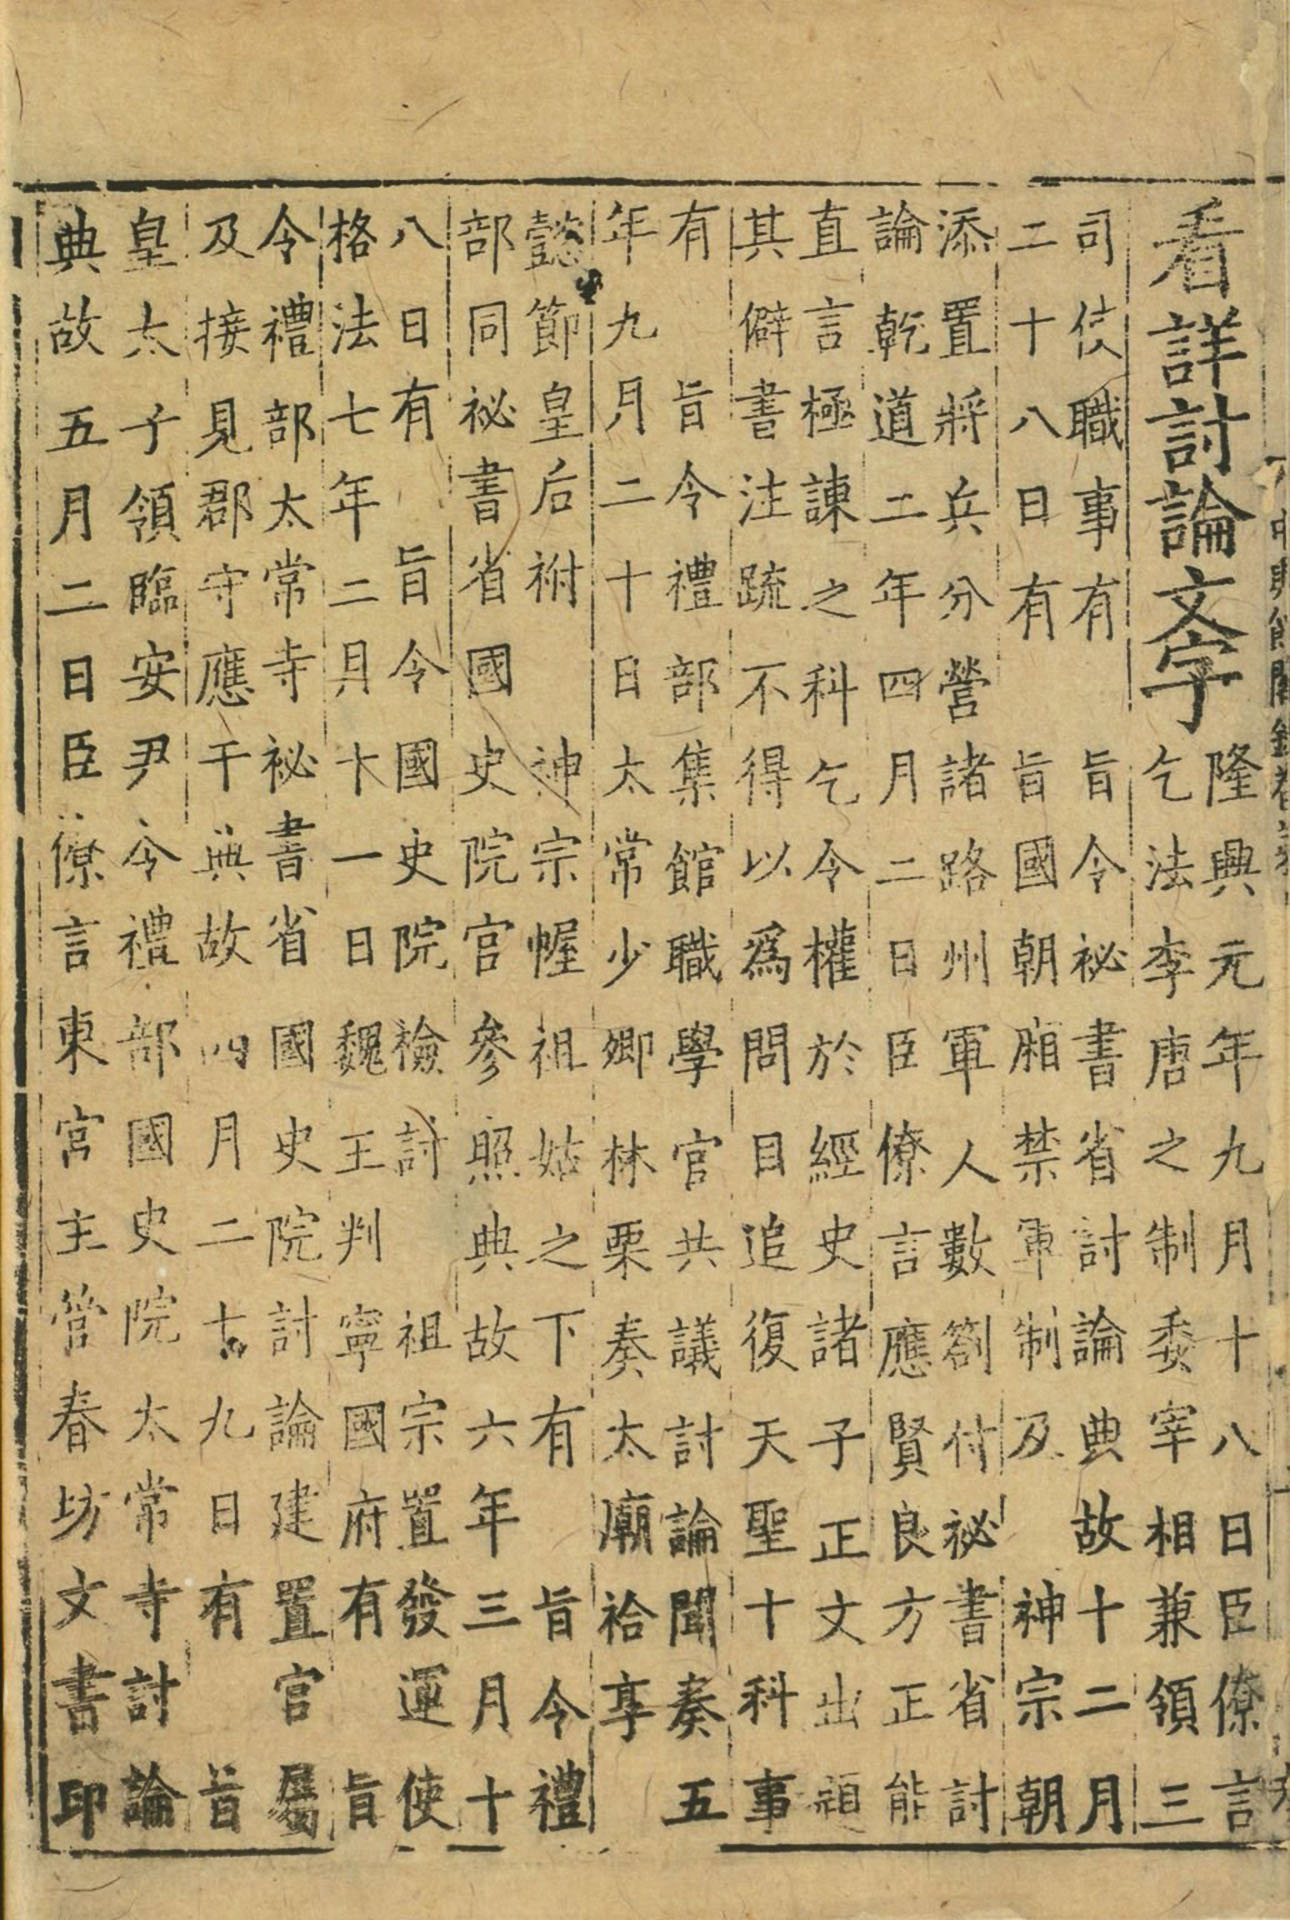 看詳討論文字
隆興元年九月十八日臣僚言
乞法李唐之制委宰相兼領三
司使職事有　旨令祕書省討論典故十二月
二十八日有　旨國朝廂禁軍制及　神宗朝
添置將兵分營諸路州軍人數劄付祕書省討
論乾道二年四月二日臣僚言應賢良方正能
直言極諫之科乞令權於經史諸子正文出題
其僻書注疏不得以爲問目追復天聖十科事
有　旨令禮部集館職學官共議討論聞奏五
年九月二十日太常少卿林栗奏太廟祫享
懿節皇后祔　神宗幄祖姑之下有　旨令禮
部同祕書省國史院官參照典故六年三月十
八日有　旨令國史院檢討　祖宗置發運使
格法七年二月十一日魏王判寧國府有　旨
令禮部太常寺祕書省國史院討論建置官屬
及接見郡守應干典故四月二十九日有　旨
皇太子領臨安尹令禮部國史院太常寺討論
典故五月二日臣僚言東宮主管春坊文書印